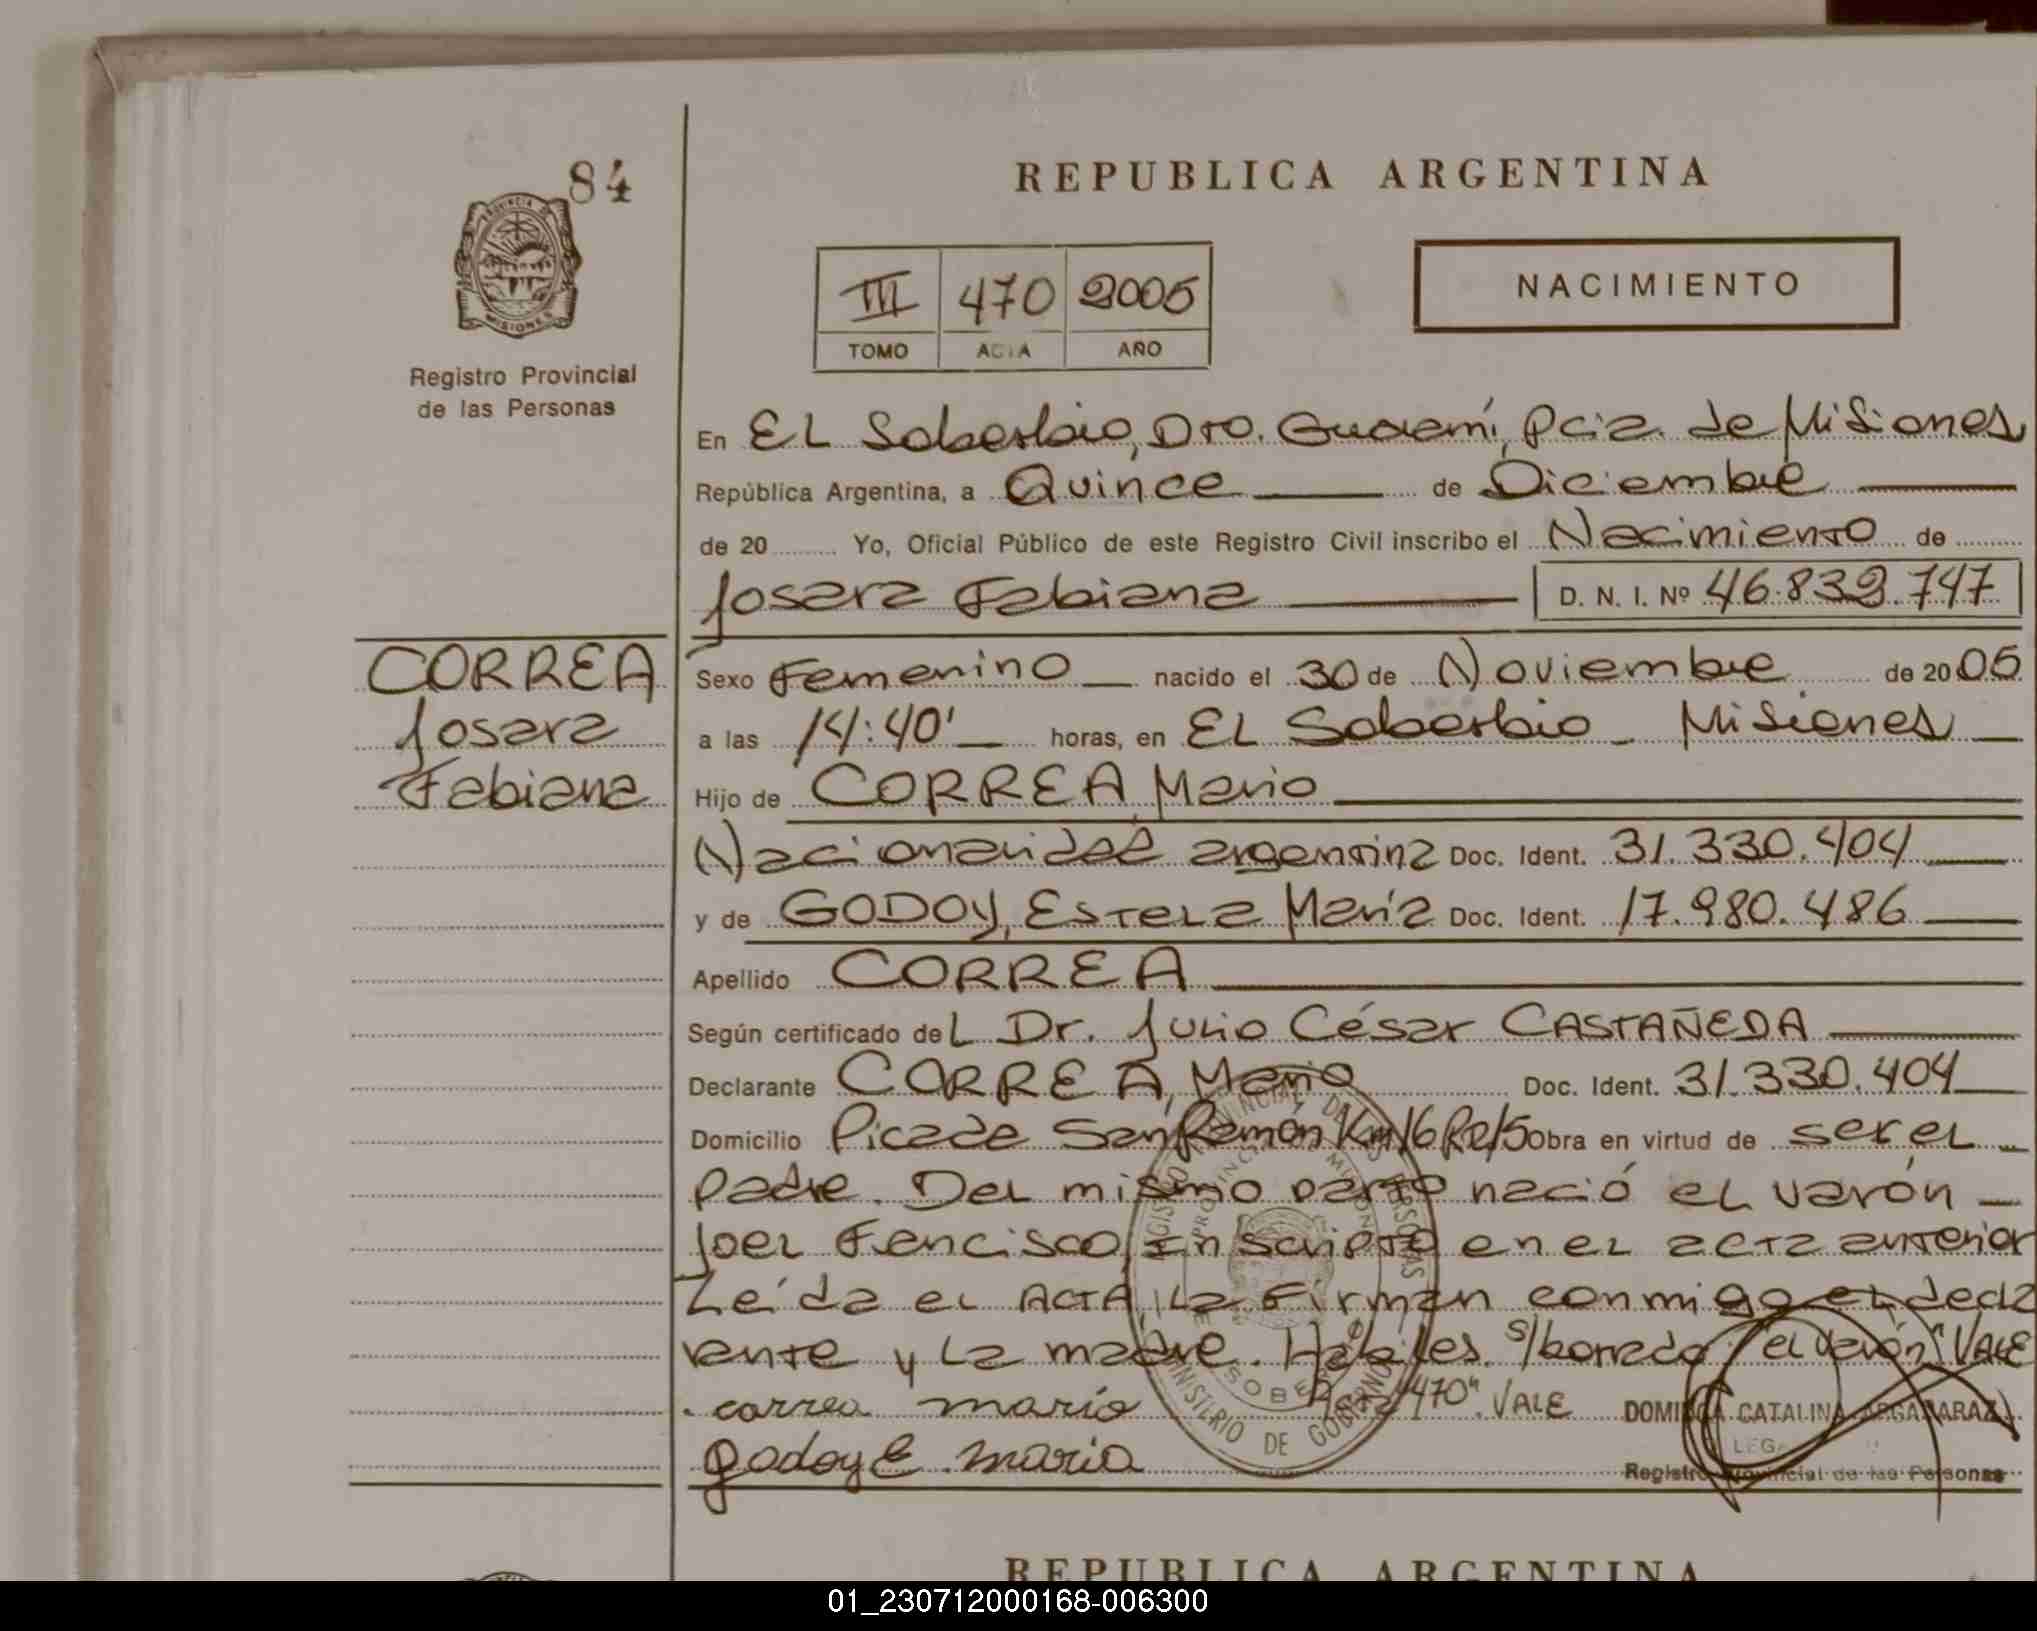 84
REPUBLICA ARGENTINA
PROVINCIA DE MISIONES
III 470 2005
TOMO ACTA AÑO
NACIMIENTO
Registro Provincial
de las Personas
En EL Soberbio, Dto. Guaraní, Pcia. de Misiones
República Argentina, a Quince de Diciembre
de 20 Yo, Oficial Público de este Registro Civil inscribo el Nacimiento de
Josara Fabiana D. N. I. Nº 46.839.747
CORREA
Josara
Fabiana
Sexo Femenino nacido el 30 de Noviembre de 20 05
a las 14:40' horas, en EL Soberbio - Misiones
Hijo de CORREA, Mario
Nacionalidad argentina Doc. Ident. 31.330.404
y de GODOY, Estela María Doc. Ident. 17.980.486
Apellido CORREA
Según certificado del Dr. Julio César CASTAÑEDA
Declarante CORREA, Mario Doc. Ident. 31.330.404
Domicilio Picada San Ramón Km 16 Obra en virtud de ser el
padre. Del mismo parto nació el varón
Joel Francisco, Inscripto en el acta anterior
Leída el ACTA, la Firman conmigo el decla
rante y la madre. Hábiles. s/borrado: "el varón" VALE
Acta "470". VALE
correa mario
godoy E maria
DOMINGA CATALINA ARGAÑARAZ
Registro Provincial de las Personas
REGISTRO PROVINCIAL DE LAS PERSONAS
PROVINCIA DE MISIONES
MINISTERIO DE GOBIERNO
REPUBLICA ARGENTINA
01_230712000168-006300